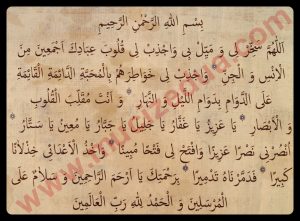 بِسْمِ اللهِ الرَّحْمٰنِ الرَّحِيمِ
اَللّٰهُمَّ سَخِّرْ لِى وَ مَيِّلْ بِى وَاجْذِبْ لِى قُلُوبَ عِبَادِكَ اَجْمَعِينَ مِنَ
الْاِنْسِ وَ الْجِنِّ * وَاجْذِبْ لِى خَوَاطِرَهُمْ بِالْمَحَبَّةِ الدَّائِمَةِ الْقَائِمَةِ
عَلَى الدَّوَامِ بِدَوَامِ اللَّيْلِ وَ النَّهَارِ * وَ اَنْتَ مُقَلِّبُ الْقُلُوبِ
وَ الْاَبْصَارِ * يَا عَزِيزُ يَا غَفَّارُ يَا جَلِيلُ يَا جَبَّارُ يَا مُعِينُ يَا سَتَّارُ *
اُنْصُرْنِى نَصْرًا عَزِيزًا وَافْتَحْ لِى فَتْحًا مُبِينًا * وَاخْذُلْ اَعْدَائِى خِذْلَانًا
كَبِيرًا * فَدَمَّرْنَاهُ تَدْمِيرًا * بِرَحْمَتِكَ يَا اَرْحَمَ الرَّاحِمِينَ وَ سَلَامٌ عَلَى
الْمُرْسَلِينَ وَ الْحَمْدُ لِلّٰهِ رَبِّ الْعَالَمِينَ